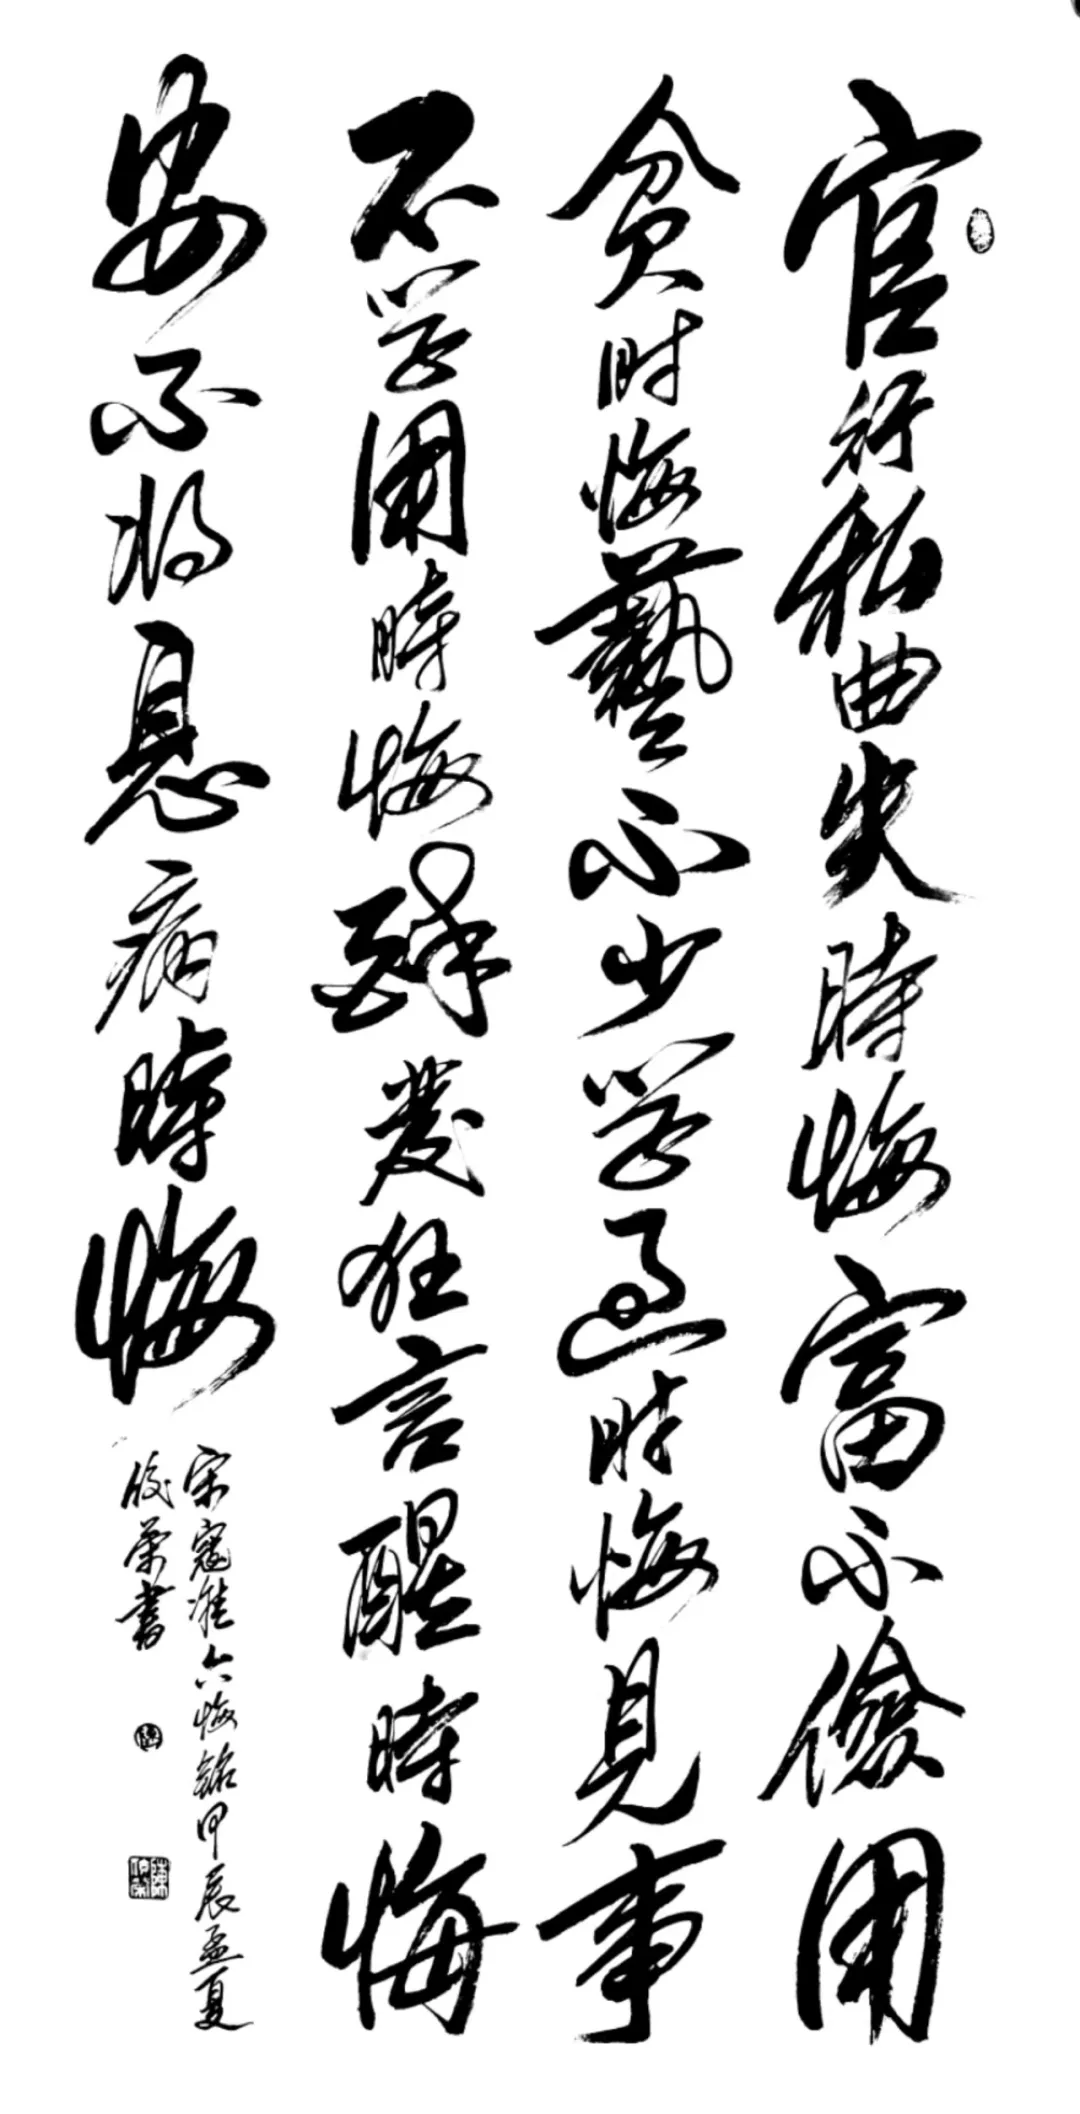 官行私曲失時悔富不儉用
貧时悔藝不少学過时悔見事
不学用時悔醉發狂言醒時悔
安不将息病時悔
宋寇准六悔銘甲辰孟夏
榮書